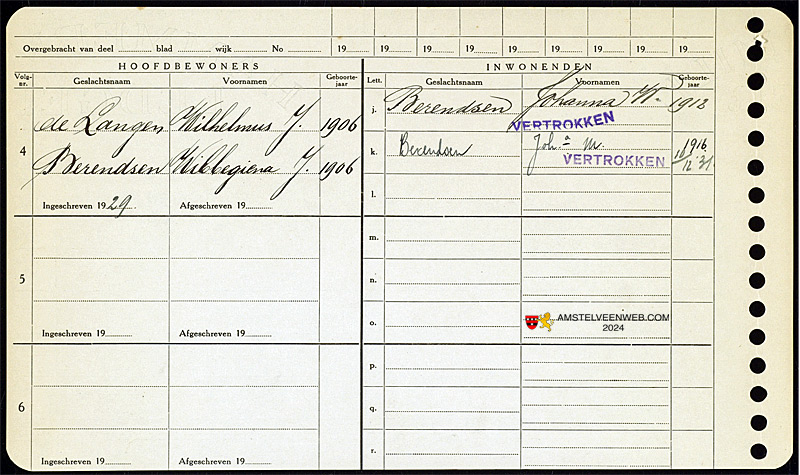 Overgebracht van deel ............ blad ............ wijk ............ No ............ 19..... 19..... 19..... 19..... 19..... 19..... 19..... 19..... 19.....
HOOFDBEWONERS INWONENDEN
Volg-nr. Geslachtsnaam Voornamen Geboorte-jaar Lett. Geslachtsnaam Voornamen Geboorte-jaar
j. Berendsen Johanna W. 1912
VERTROKKEN
4 de Langen Wilhelmus J. 1906
k. Berendsen Joh.a M. 1916
VERTROKKEN
Berendsen Wibbegiena J. 1906
l.
Ingeschreven 1929. Afgeschreven 19.....
m.
5 n.
o. AMSTELVEENWEB.COM
2024
Ingeschreven 19..... Afgeschreven 19.....
p.
6 q.
r.
Ingeschreven 19..... Afgeschreven 19.....